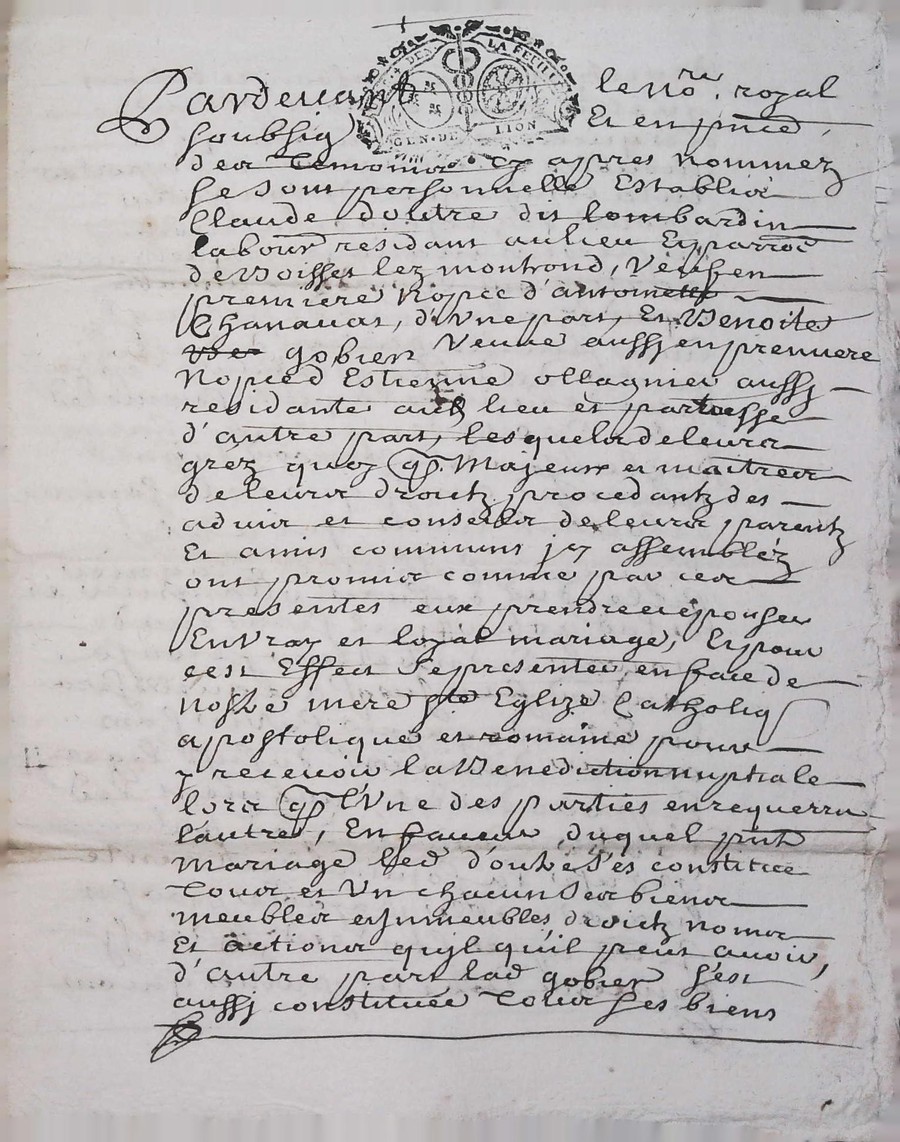 DEN LA FEUILLE
GEN. DE LION
Pardevant le no.re royal
soubsig Et en pnce
des Temoins cy apres nommez
se sont personnelle Establis
Claude doutre dit lombardin
labour residant au lieu Et parroe
de Boisset lez montrond, Veuf en
premiere Nopce d'antoinette
Chanavat, d'Vne part, Et Benoite
gobier Veuve aussy en premiere
Nopced Estienne ollagnier aussy
residante aud lieu et parroisse
d'autre part, lesquels de leurs
grez quoy q. Majeurs et maitres
de leurs droitz procedantz des
advis et conseils de leurs parentz
Et amis communs jcy assembléz
ont promis comme par ces
presentes eux prendre et épouser
En Vray et loyal mariage, Et pour
cest Effect Se presenter en face de
nostre mere ste Eglize Catholiq
apostolique et romaine pour
y recevoir la Benediction nuptiale
lors q. l'Vne des parties en requerra
l'autre, En faveur duquel pnt
Mariage led d'outre s'es constitué
Tous et Vn chacun Ses biens
meubles et Immeubles droictz noms
Et actions quil qu'il peut avoir,
d'autre part lad gobier s'est
aussy constituée Tous ses biens